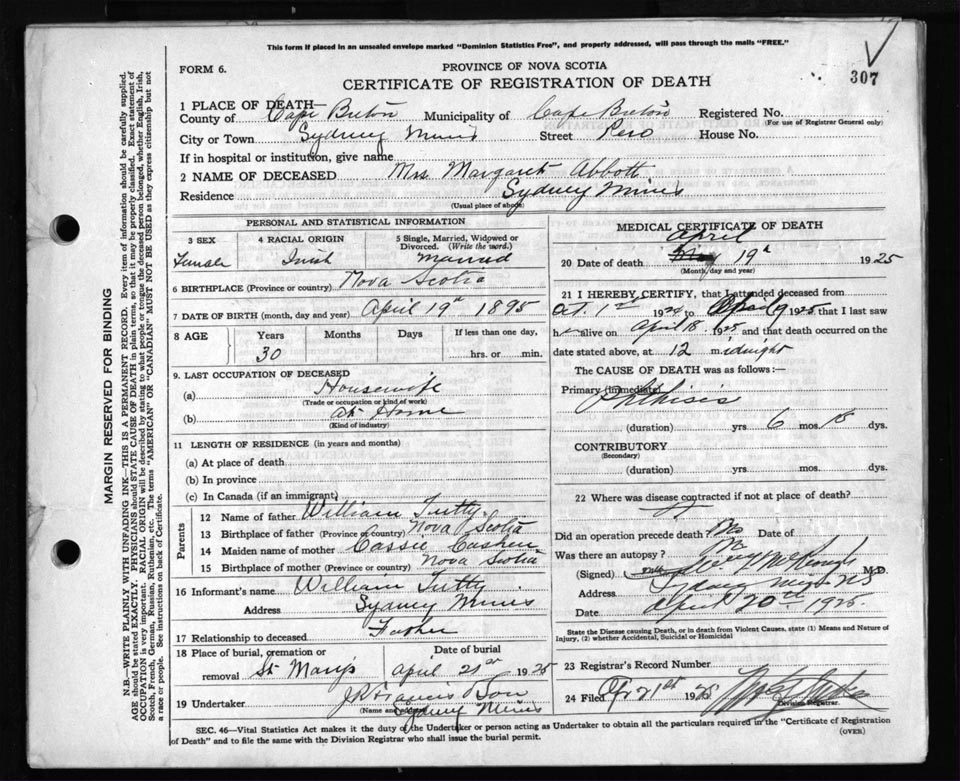 This form if placed in an unsealed envelope marked "Dominion Statistics Free", and properly addressed, will pass through the mails "FREE."
FORM 6.
PROVINCE OF NOVA SCOTIA
307
CERTIFICATE OF REGISTRATION OF DEATH
1 PLACE OF DEATH—
County of Cape Breton Municipality of Cape Breton Registered No.
(For use of Registrar General only)
City or Town Sydney Mines Street Pero House No.
If in hospital or institution, give name
2 NAME OF DECEASED Mrs Margaret Abbott
Residence Sydney Mines
(Usual place of abode)
PERSONAL AND STATISTICAL INFORMATION
3 SEX
Female
4 RACIAL ORIGIN
Irish
5 Single, Married, Widowed or Divorced. (Write the word.)
Married
6 BIRTHPLACE (Province or country) Nova Scotia
7 DATE OF BIRTH (month, day and year) April 19th 1895
8 AGE
Years Months Days If less than one day,
30
hrs. or min.
9. LAST OCCUPATION OF DECEASED
(a) Housewife
(Trade or occupation or kind of work)
(b) At Home
(Kind of industry)
11 LENGTH OF RESIDENCE (in years and months)
(a) At place of death
(b) In province
(c) In Canada (if an immigrant)
Parents
12 Name of father William Tutty
13 Birthplace of father (Province or country) Nova Scotia
14 Maiden name of mother Cassie Cashen
15 Birthplace of mother (Province or country) Nova Scotia
16 Informant's name William Tutty
Address Sydney Mines
17 Relationship to deceased Father
18 Place of burial, cremation or Date of burial
removal St Marys April 21st 1925
19 Undertaker J R Francis & Son
(Name and address)
Sydney Mines
MEDICAL CERTIFICATE OF DEATH
April
20 Date of death May 19th 1925
(Month, day and year)
21 I HEREBY CERTIFY, that I attended deceased from
Oct. 1st 1924 to April 19 1925 that I last saw
h er alive on April 18. 1925 and that death occurred on the
date stated above, at 12 midnight
The CAUSE OF DEATH was as follows:—
Primary (Immediate)
Phthisis
(duration) yrs 6 mos 18 dys.
CONTRIBUTORY
(Secondary)
(duration) yrs. mos. dys.
22 Where was disease contracted if not at place of death?
Did an operation precede death? No Date of
Was there an autopsy? No
(Signed) M.D.
Address Sydney Mines NS
Date April 20th 1925.
State the Disease causing Death, or in death from Violent Causes, state (1) Means and Nature of Injury, (2) whether Accidental, Suicidal or Homicidal
23 Registrar's Record Number
24 Filed Apr 21st 1925
Division Registrar.
SEC. 46—Vital Statistics Act makes it the duty of the Undertaker or person acting as Undertaker to obtain all the particulars required in the "Certificate of Registration
of Death" and to file the same with the Division Registrar who shall issue the burial permit.
(OVER)
MARGIN RESERVED FOR BINDING
N.B.—WRITE PLAINLY WITH UNFADING INK—THIS IS A PERMANENT RECORD. Every item of information should be carefully supplied.
AGE should be stated EXACTLY. PHYSICIANS should STATE CAUSE OF DEATH in plain terms, so that it may be properly classified. Exact statement of
OCCUPATION is very important. RACIAL ORIGIN will be described by stating to what people or tongue the deceased person belonged, whether English, Irish,
Scotch, French, German, Russian, Ruthenian, etc. The terms "AMERICAN" or "CANADIAN" MUST NOT BE USED as they express citizenship but not
a race or people. See instructions on back of Certificate.